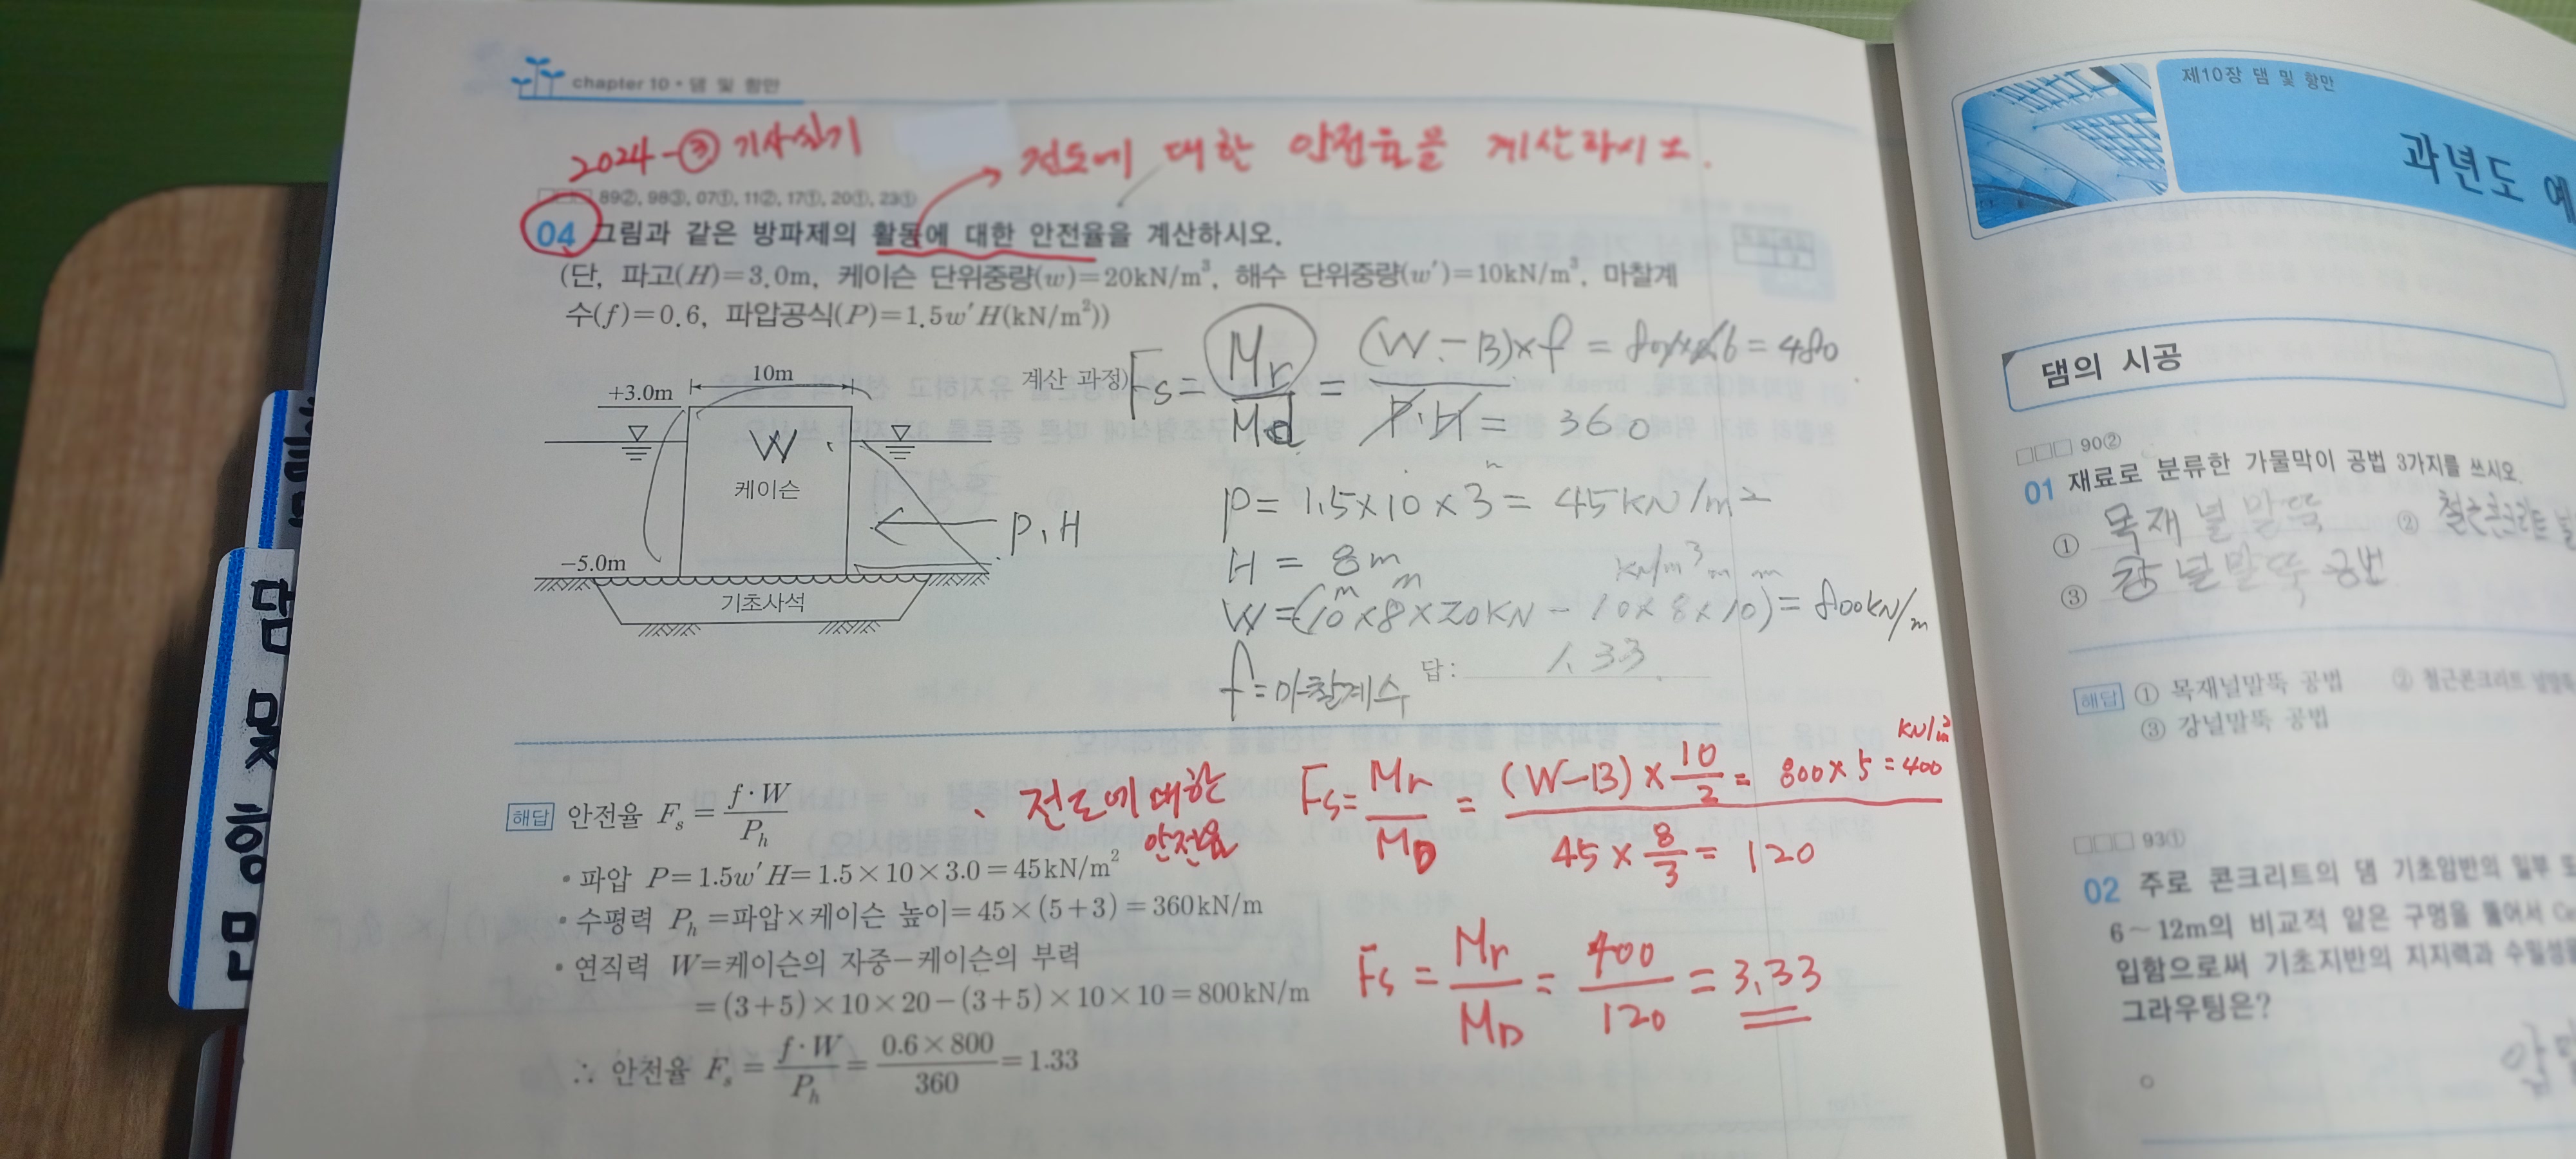 chapter 10 · 댐 및 항만
2024-③ 기사실기
→ 전도에 대한 안전율을 계산하시오.
89②, 98③, 07①, 11②, 17①, 20①, 23①
04 그림과 같은 방파제의 활동에 대한 안전율을 계산하시오.
(단, 파고(H)=3.0m, 케이슨 단위중량(w)=20kN/m³, 해수 단위중량(w′)=10kN/m³, 마찰계
수(f)=0.6, 파압공식(P)=1.5w′H(kN/m²))
+3.0m
10m
W
케이슨
P.H
-5.0m
기초사석
계산 과정)
Fs = Mr/Md = (W-B)×f = 800×0.6 = 480 / P.H = 360
P = 1.5×10×3 = 45KN/m²
H = 8m
KN/m³ m m
m m
W = (10×8×20KN - 10×8×10) = 800kN/m
f = 마찰계수
답: 1.33
해답 안전율 Fs = f·W/Ph
• 파압 P=1.5w′H=1.5×10×3.0=45kN/m²
• 수평력 Ph=파압×케이슨 높이=45×(5+3)=360kN/m
• 연직력 W=케이슨의 자중-케이슨의 부력
=(3+5)×10×20-(3+5)×10×10=800kN/m
∴ 안전율 Fs = f·W/Ph = 0.6×800/360 = 1.33
전도에 대한
안전율
KN/m²
Fs = Mr/MD = (W-B)×10/2 = 800×5 = 400 / 45×8/3 = 120
Fs = Mr/MD = 400/120 = 3.33
댐 및 항만
제10장 댐 및 항만
과년도 예
댐의 시공
90②
01 재료로 분류한 가물막이 공법 3가지를 쓰시오.
① 목재 널말뚝
② 철근콘크리트 널
③ 강널말뚝 공법
해답 ① 목재널말뚝 공법 ② 철근콘크리트 널말뚝
③ 강널말뚝 공법
93①
02 주로 콘크리트의 댐 기초암반의 일부
6~12m의 비교적 얕은 구멍을 뚫어서
입함으로써 기초지반의 지지력과 수밀성을
그라우팅은?